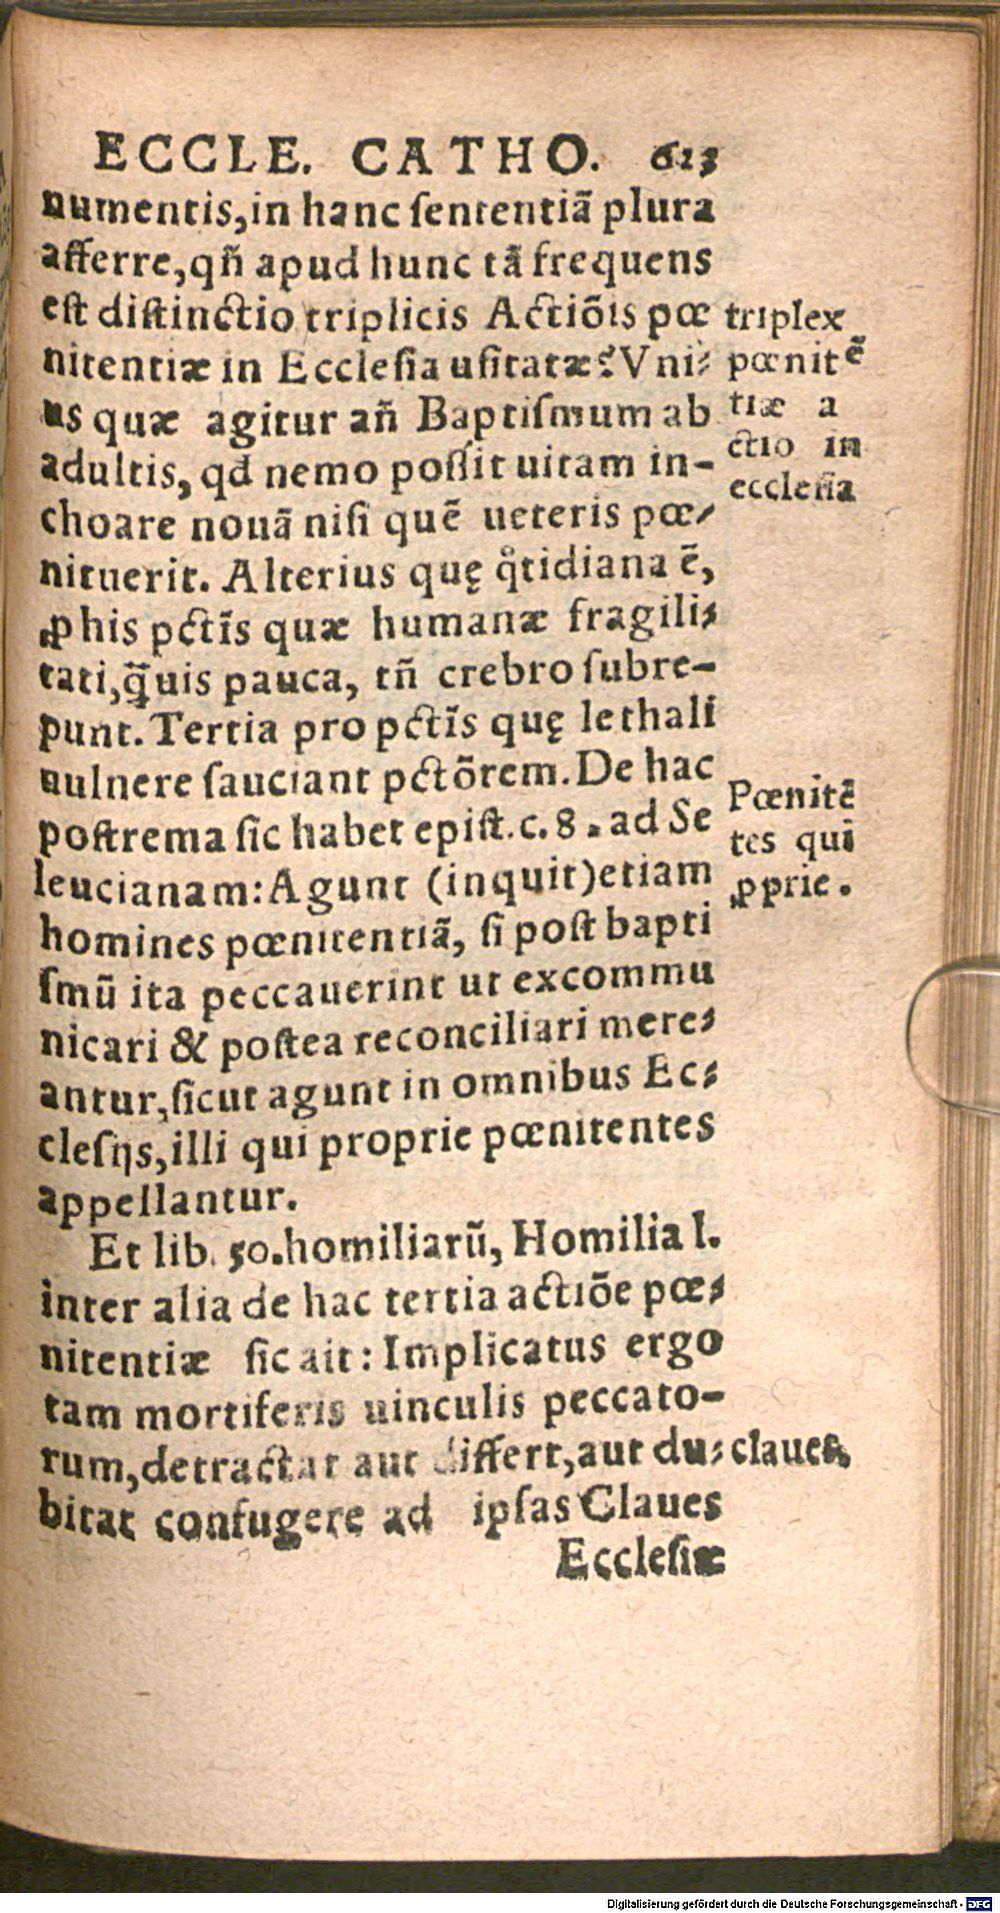 ECCLE. CATHO. 623
numentis, in hanc ſententiã plura
afferre, qñ apud hunc tã frequens
eſt diſtinctio triplicis Actiõis pœ
nitentiæ in Eccleſia uſitatæ? Vni⸗
us quæ agitur añ Baptiſmum ab
adultis, qd nemo poſſit uitam in-
choare nouã niſi quẽ ueteris pœ⸗
nituerit. Alterius quę qͥtidiana ẽ,
ꝓ his pctĩs quæ humanæ fragili⸗
tati, q̃uis pauca, tñ crebro ſubre-
punt. Tertia pro pctĩs quę lethali
uulnere ſauciant pctõrem. De hac
poſtrema ſic habet epiſt. c. 8. ad Se
leucianam: Agunt (inquit) etiam
homines pœnitentiã, ſi poſt bapti
ſmũ ita peccauerint ut excommu
nicari & poſtea reconciliari mere⸗
antur, ſicut agunt in omnibus Ec⸗
cleſijs, illi qui proprie pœnitentes
appellantur.
Et lib. 50. homiliarũ, Homilia I.
inter alia de hac tertia actiõe pœ⸗
nitentiæ ſic ait: Implicatus ergo
tam mortiferis uinculis peccato-
rum, detractat aut differt, aut du⸗
bitat confugere ad ipſas Claues
Eccleſiæ
triplex
pœnitẽ
tiæ a
ctio in
eccleſia
Pœnitẽ
tes qui
ꝓprie.
claues
Digitalisierung gefördert durch die Deutsche Forschungsgemeinschaft - DFG